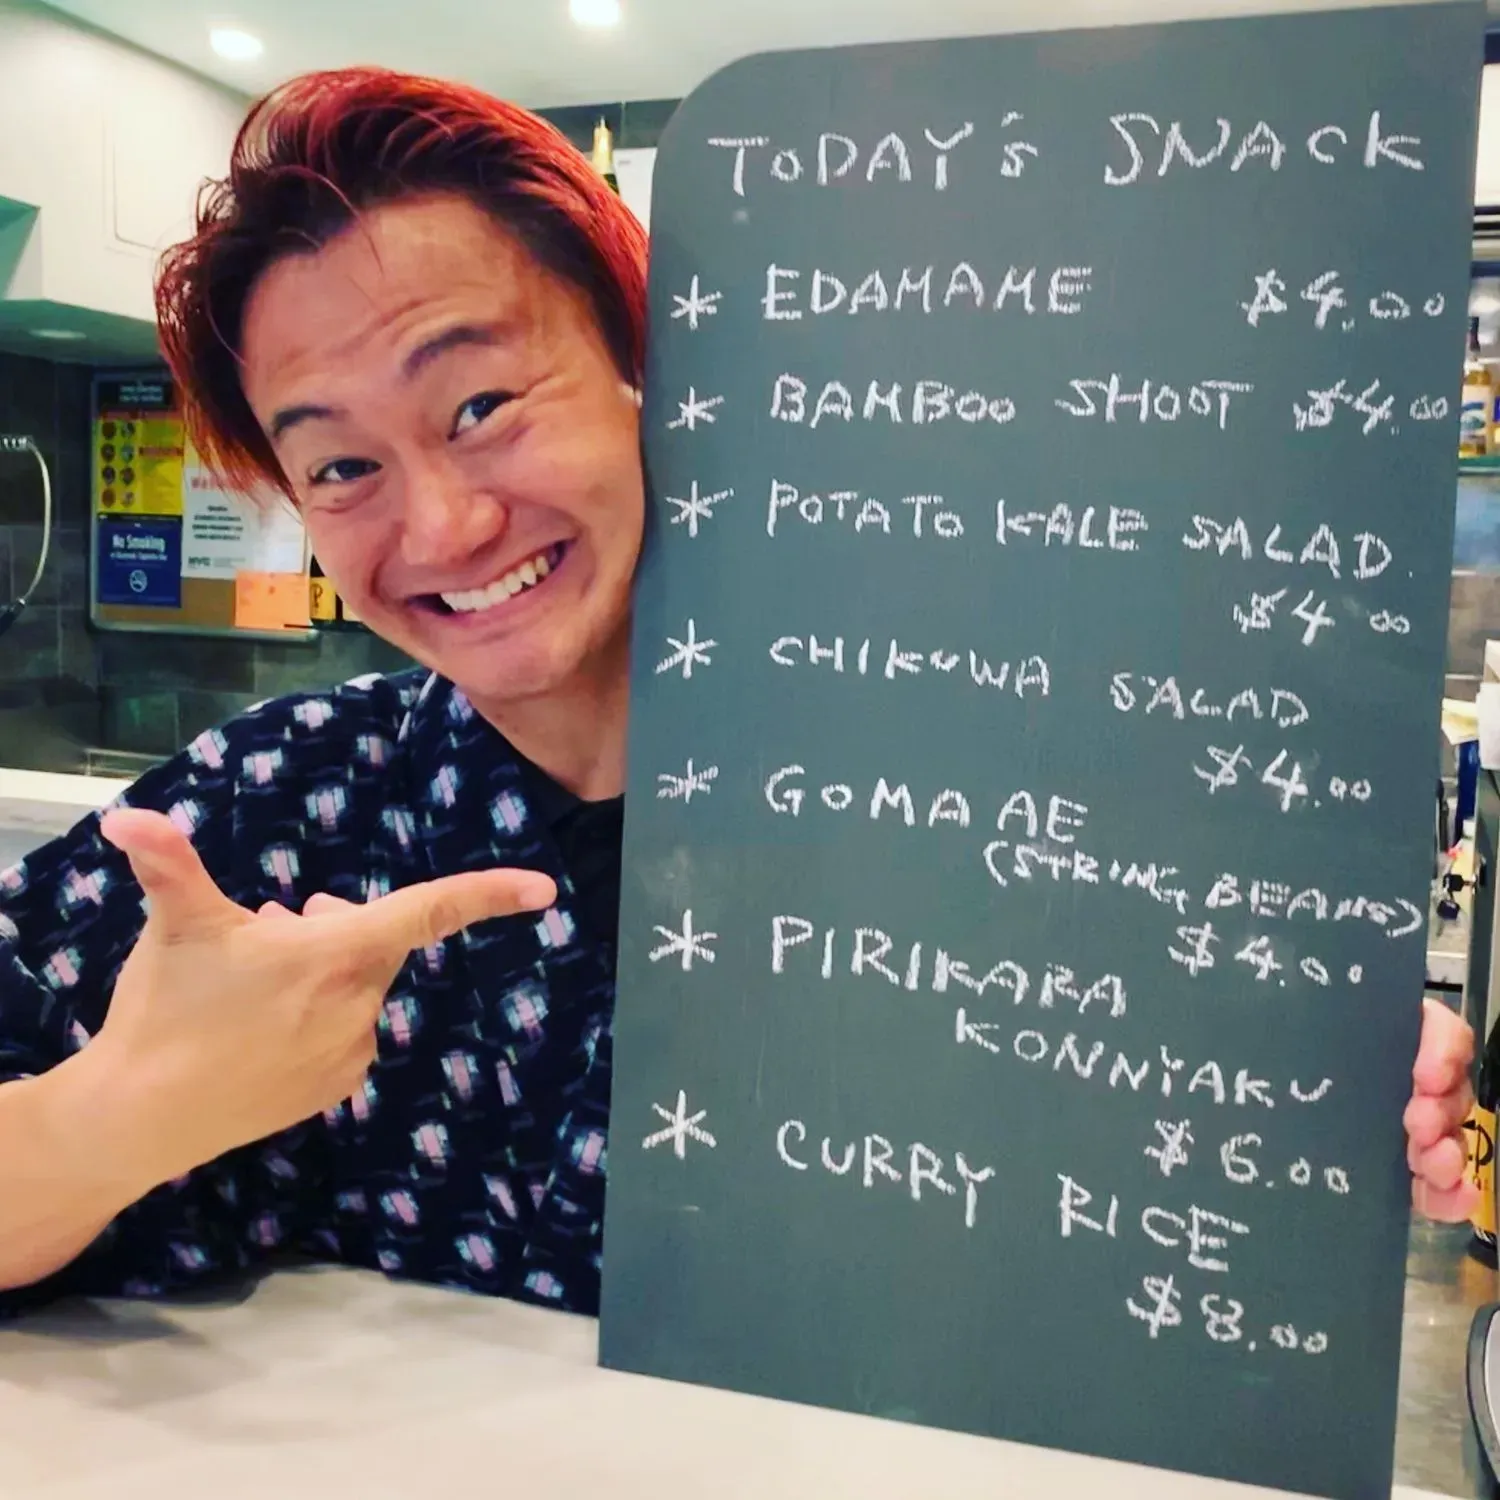 TODAY's SNACK
* EDAMAME $4.00
* BAMBOO SHOOT $4.00
* POTATO KALE SALAD.
$4.00
* CHIKUWA SALAD
$4.00
* GOMA AE
(STRING BEANS)
$4.00
* PIRIKARA
KONNYAKU
$6.00
* CURRY RICE
$8.00
No Smoking
NYC